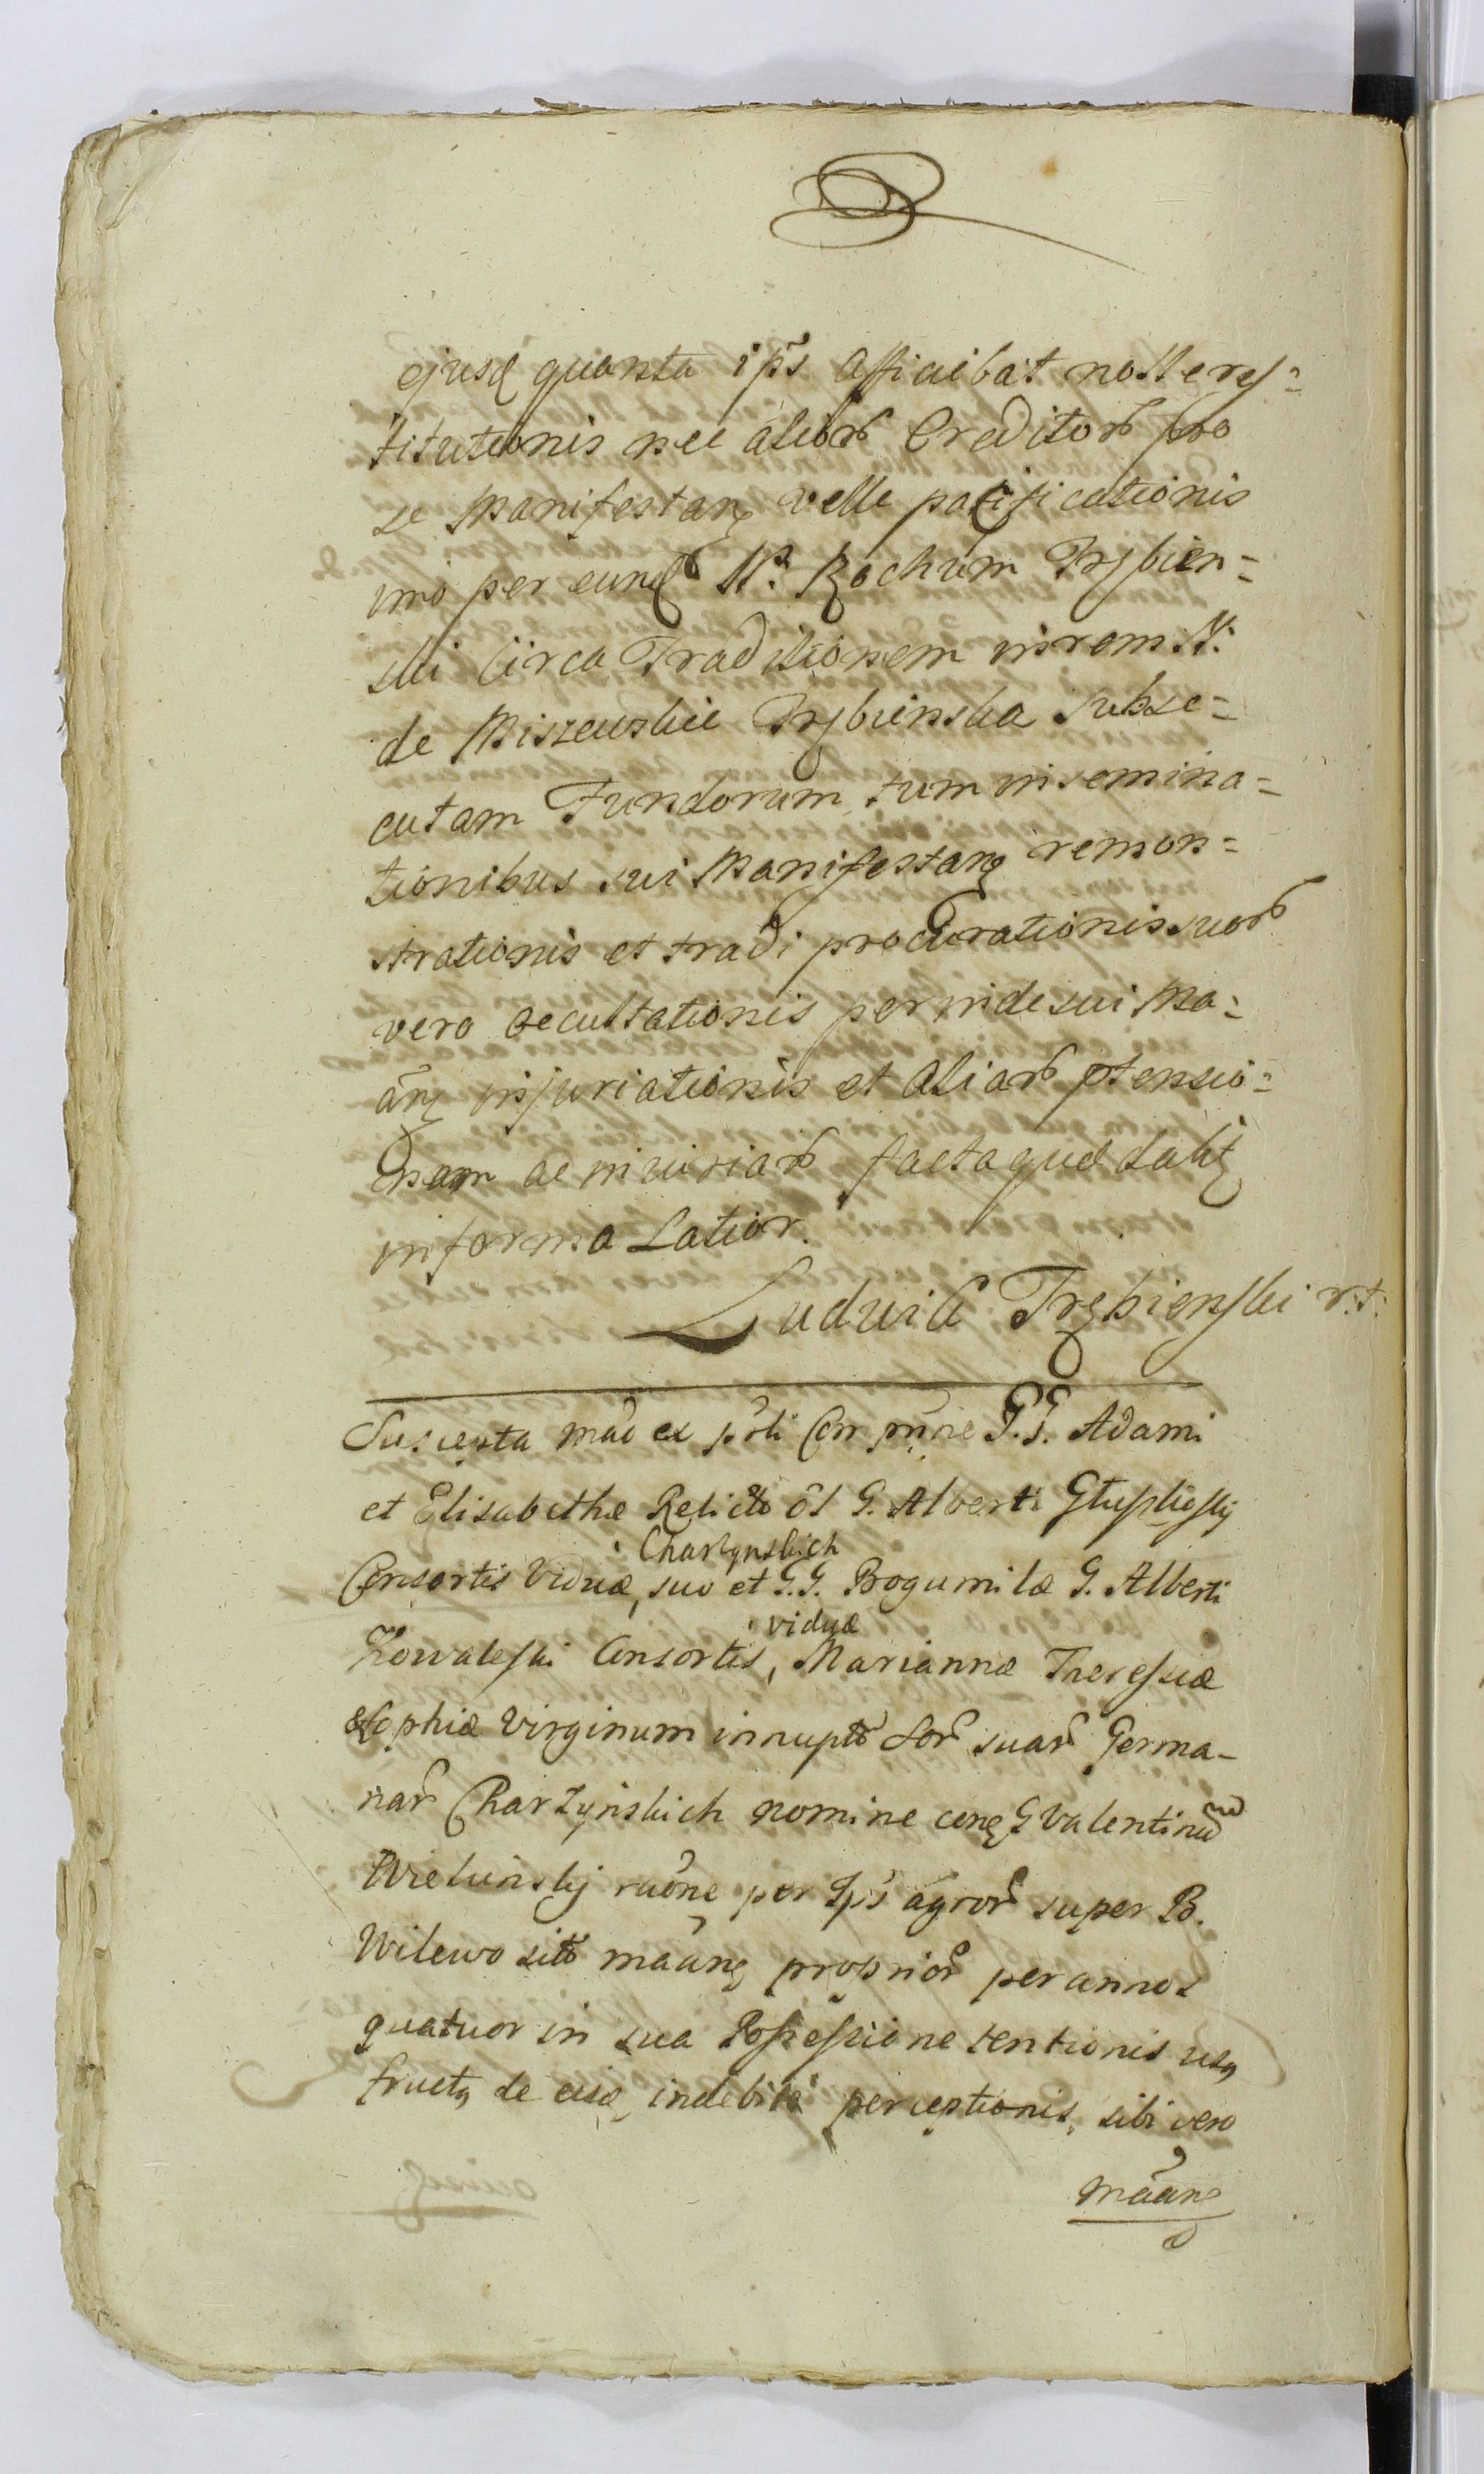 ejusq quanta ip̃s afficiebat nolle res=
titutionis nec alior Creditor pro
se Manifestanṫ velle pacificationis
imo per eund M. Rochum Trębien=
ski Circa Traditionem in rem M.
de Miszewskie Trębinska subse=
cutam Fundorum tum in semina=
tionibus sui Manifestanṫ remon=
strationis et tradi procurationis suor
vero occultationis perinde sui Ma=
ãnṫ injuriationis et aliar ptensio=
num ac injuriar facta quæ dabit
in forma Latior.
Ludwik Trębienski r.t.
Suscepta mãõ ex pãrti Con pñne G.G. Adami
et Elisabethæ Relictæ ôl G. Alberti
Charzynskich
Consortis Viduæ, suo et G.G. Bogumilæ G. Alberti
viduæ
Kowaleski Consortis, Mariannæ Theressiæ
et Sophiæ Virginum innupt Sor suar Germa-
nar Charzynskich nomine conṫ G Valentinũ
Wielunskj raõne per Ip̃s agror super B.
Wilewo sit mãanṫ proprior per annos
quatuor in sua Possessione tentionis usq
fructq de eisq indebitè perceptionis, sibi vero
mãanṫ